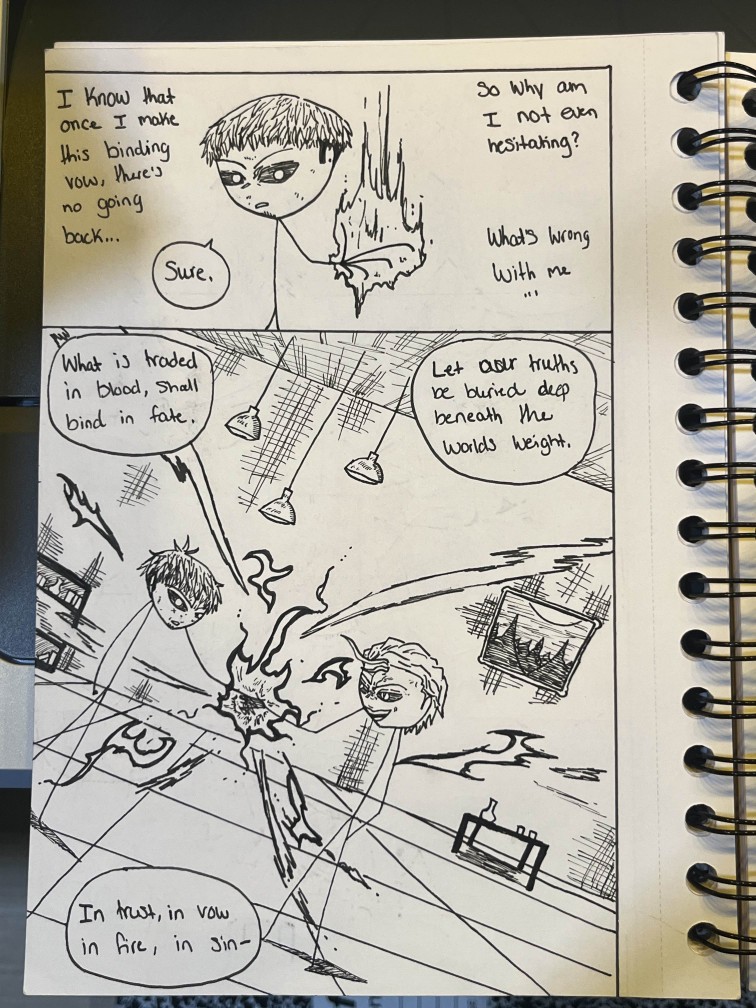 I Know that
once I make
this binding
vow, there's
no going
back...
So why am
I not even
hesitating?
What's wrong
with me
...
Sure.
What is traded
in blood, shall
bind in fate.
Let our truths
be buried deep
beneath the
worlds weight.
In trust, in vow
in fire, in sin-